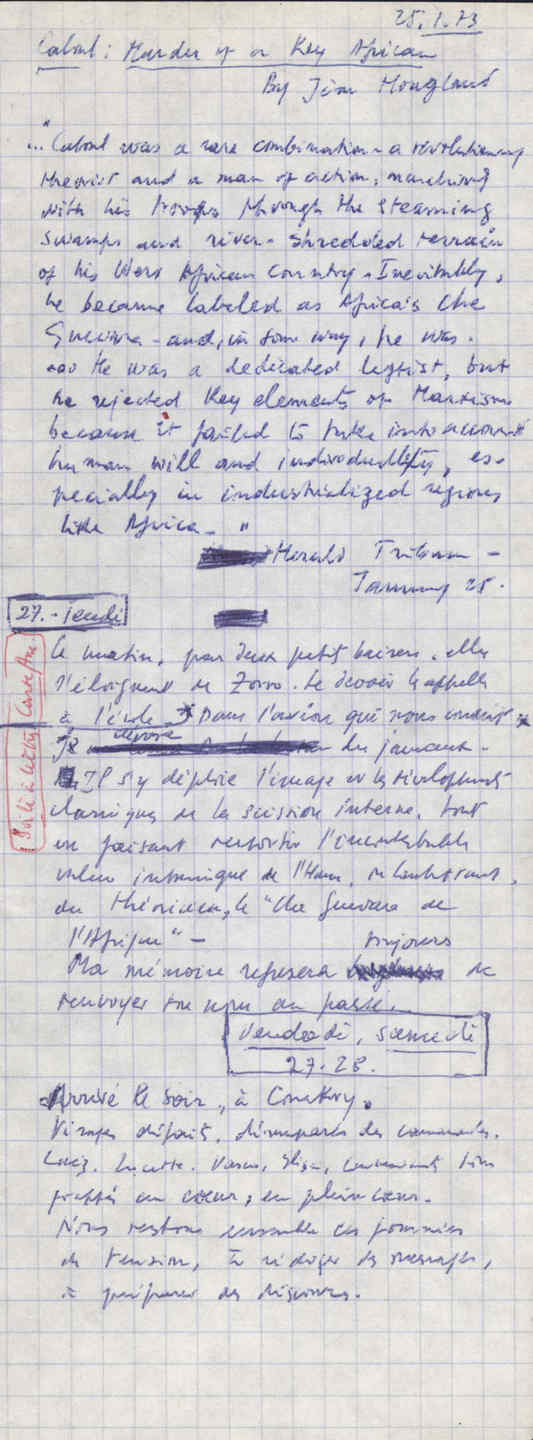 25.1.73
Cabral: Murder of a Key African
By Jim Hoagland
..."Cabral was a rare combination - a revolutionary
theorist and a man of action, marching
with his troops through the steaming
swamps and river-shredded terrain
of his West African country. Inevitably,
he became labeled as Africa's Che
Guevara - and, in some way, he was.
... He was a dedicated leftist, but
he rejected key elements of Marxism
because it failed to take into account
human will and individuality, es-
pecially in industrialized regions
like Africa - "
Herald Tribune -
January 25.
27. - jeudi
Ce matin, par deux petits baisers, elles
s'éloignent de Zorro. Le devoir l'appelle
à l'école. Dans l'avion que nous
Je dévore les journaux -
IP s'y déploie l'image et les développements
classiques de la scission interne, tout
en faisant ressortir l'incontestable
valeur intrinsèque de l'Homme,
du théoricien, le "Che Guevara de
l'Afrique" -
Ma mémoire refusera toujours de
renvoyer ton nom au passé.
Vendredi, samedi
27-28.
Arrivé le soir, à Conakry.
Visages défaits, désemparés des camarades.
Luiz, Lucette, Vasco,
frappés au coeur, en plein coeur.
Nous restons ensemble ces journées
de tension, à rédiger des messages,
à préparer des discours.